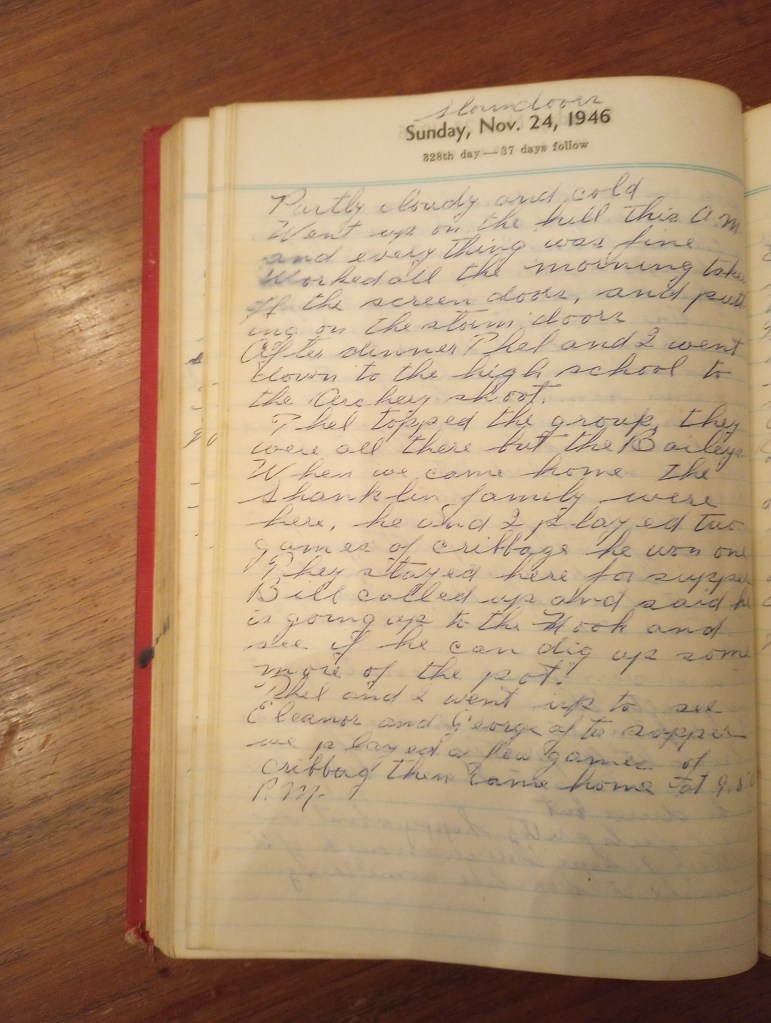 stormdoors
Sunday, Nov. 24, 1946
328th day—37 days follow
Partly cloudy and cold
Went up on the hill this A.M
and every thing was fine
Worked all the morning take
off the screen doors, and putt
ing on the storm doors
After dinner Phel and I went
down to the high school to
the Archery shoot.
Phel topped the group, they
were all there but the Baileys
When we came home the
Shanklin family were
here, he and I played two
games of cribbage he won one
They stayed here for supper
Bill called up and said he
is going up to the Nook and
see if he can dig up some
more of the pot.
Phel and I went up to see
Eleanor and George afte supper
we played a few games of
cribbag then came home at 9.50
P.M.